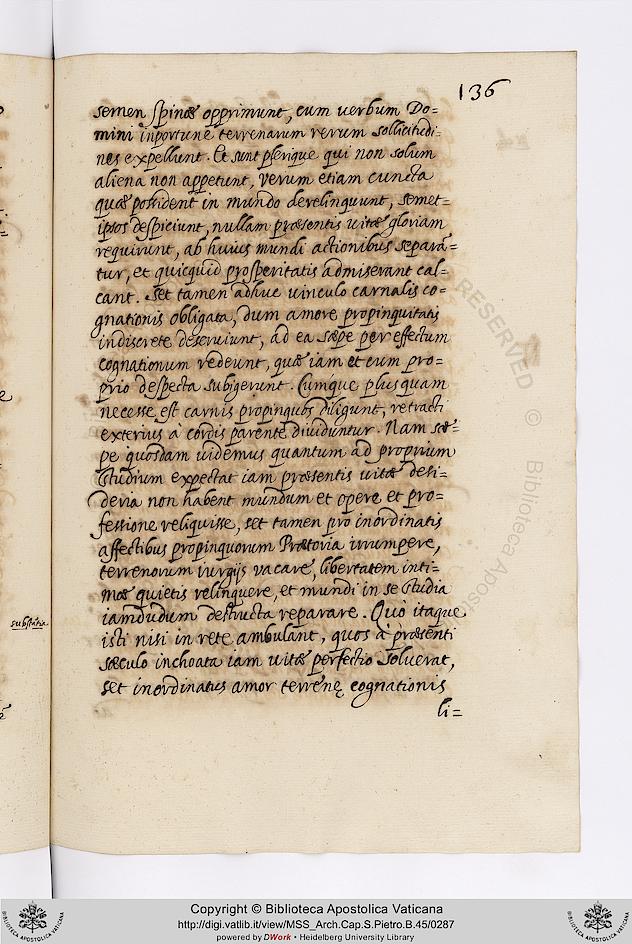 136
semen spinæ opprimunt, cum uerbum Do=
mini inportune terrenarum rerum sollicitudi=
nes expellunt. Et sunt plerique qui non solum
aliena non appetunt, verum etiam cuncta
quæ possident in mundo derelinquunt, semet=
ipsos despiciunt, nullam præsentis uitæ gloriam
requirunt, ab huius mundi actionibus separã=
tur, et quicquid prosperitatis admiserant cal=
cant. Set tamen adhuc uinculo carnalis co=
gnationis obligata, dum amore propinquitatis
indiscrete deseruiunt, ad ea sæpe per effectum
cognationum redeunt, quæ iam et cum pro=
prio despecta subigerunt. Cumque plusquam
necesse est carnis propinquos diligunt, retracti
exterius à cordis parente diuiduntur. Nam sæ=
pe quosdam uidemus quantum ad proprium
studium expectat iam præsentis uitæ desi=
deria non habent mundum et opere et pro=
fessione reliquisse, set tamen pro inordinatis
affectibus propinquorum Prætoria irrumpere,
terrenorum iurgijs vacare, libertatem inti=
mæ quietis relinquere, et mundi in se studia
iamdudum destructa reparare. Quo itaque
isti nisi in rete ambulant, quos à præsenti
sæculo inchoata iam uitæ perfectio soluerat,
set inordinatus amor terrenę cognationis
li=
substãtia
RESERVED © Biblioteca Apos
Copyright © Biblioteca Apostolica Vaticana
http://digi.vatlib.it/view/MSS_Arch.Cap.S.Pietro.B.45/0287
powered by DWork • Heidelberg University Library